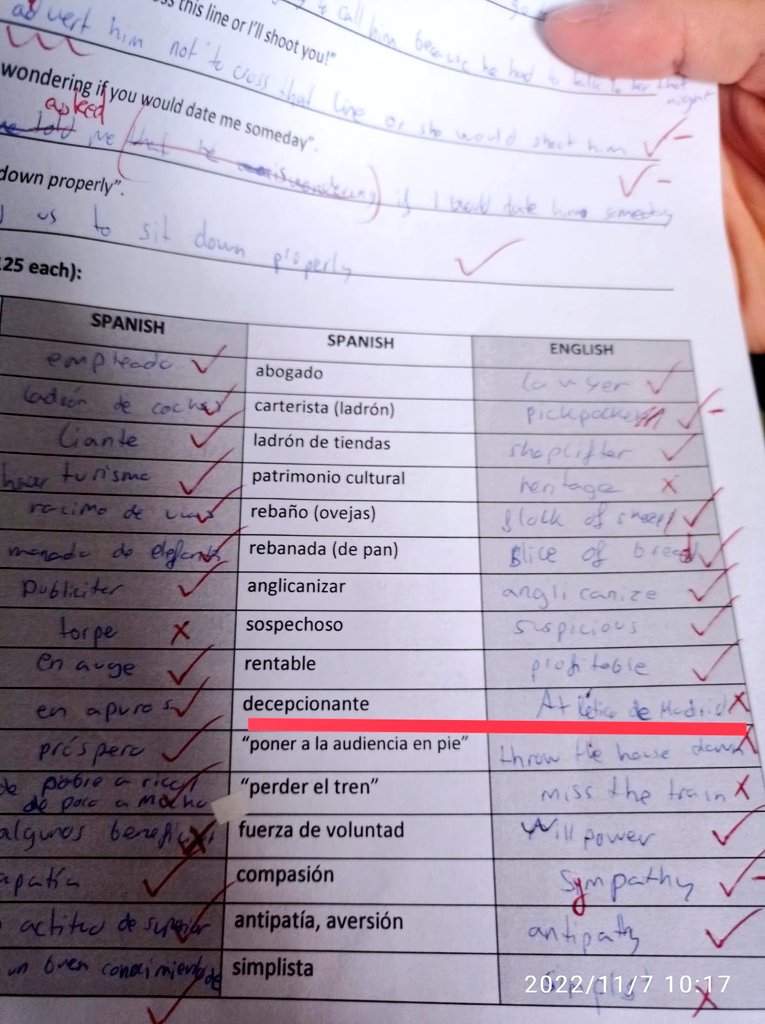 to call him because he had to talk to her that night
ss this line or I'll shoot you!"
advert him not to cross that line or she would shoot him
wondering if you would date me someday".
asked
told me that he was wondering if I would date him someday
down properly".
us to sit down properly
.25 each):
SPANISH SPANISH ENGLISH
empleado abogado lawyer
ladrón de coches carterista (ladrón) pickpocket
liante ladrón de tiendas shoplifter
hacer turismo patrimonio cultural heritage
racimo de uvas rebaño (ovejas) flock of sheep
manada de elefantes rebanada (de pan) slice of bread
publicitar anglicanizar anglicanize
torpe sospechoso suspicious
en auge rentable profitable
en apuros decepcionante Atlético de Madrid
próspero "poner a la audiencia en pie" throw the house down
de pobre a rico/ de poco a mucho "perder el tren" miss the train
algunos beneficios fuerza de voluntad Will power
apatía compasión sympathy
actitud de superior antipatía, aversión antipathy
un buen conocimiento de simplista simplist
2022/11/7 10:17